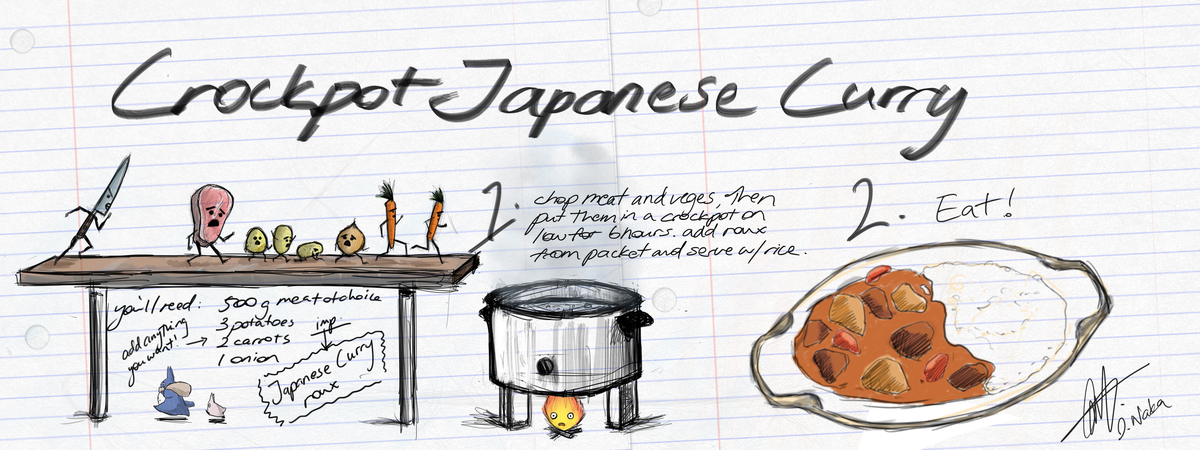 Crockpot Japanese Curry
1. chop meat and veges, then
put them in a crockpot on
low for 6 hours. add roux
from packet and serve w/ rice.
2. Eat!
you'll need: 500g meat of choice
3 potatoes
2 carrots
1 onion
add anything
you want!
imp.
Japanese Curry
roux
D. Naka